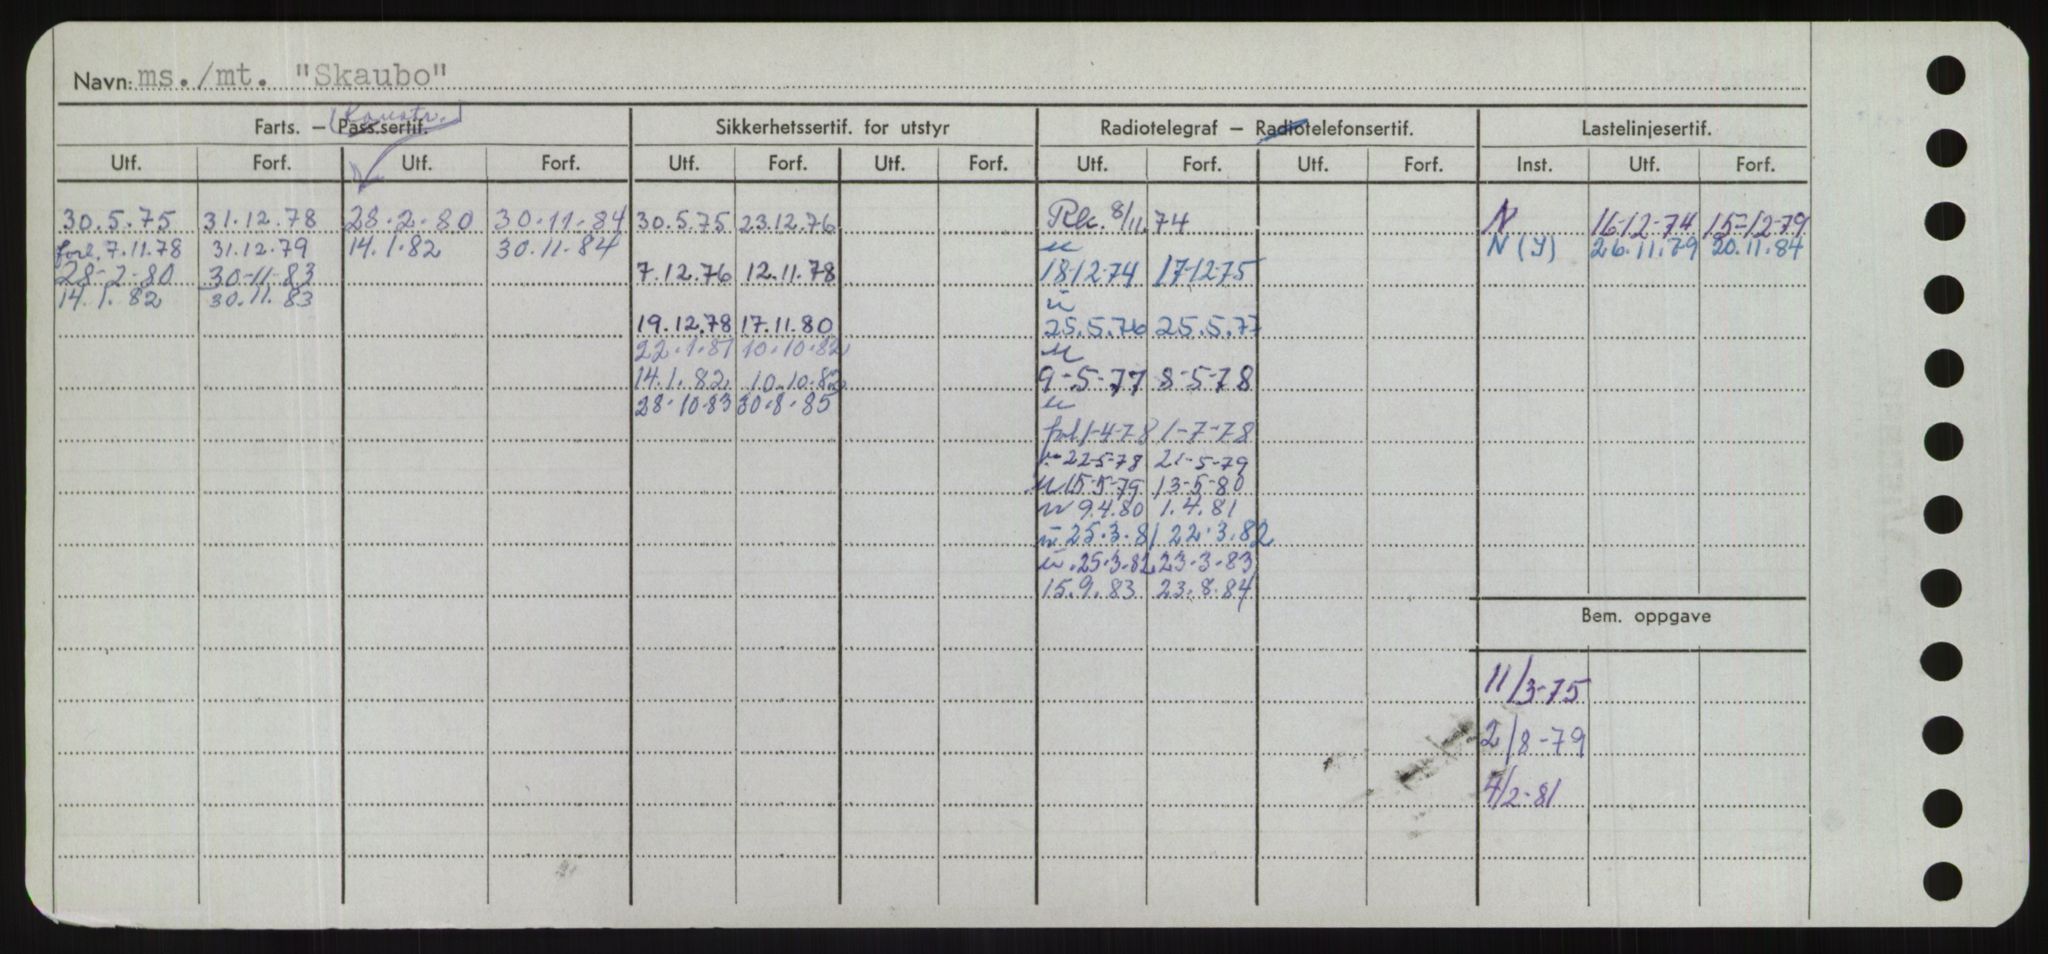 Navn: ms./mt. "Skaubo"
(Konstr.)
Farts. – Pass.sertif. Sikkerhetssertif. for utstyr Radiotelegraf – Radiotelefonsertif. Lastelinjesertif.
Utf. Forf. Utf. Forf. Utf. Forf. Utf. Forf. Utf. Forf. Utf. Forf. Inst. Utf. Forf.
30.5.75 31.12.78 28-2-80 30-11-84 30.5.75 23.12.76 8/11.74 N 16-12-74 15-12-79
forl. 7.11.78 31.12.79 14.1.82 30.11.84 N (Y) 26.11.79 20.11.84
28-2-80 30-11-83 7.12.76 12.11.78 18-12-74 17-12-75
14.1.82 30.11.83
19.12.78 17.11.80 25.5.76 25.5.77
22.1.81 10.10.82
14.1.82 10.10.82 9-5-77 8-5-78
28.10.83 30.8.85
forl 1-4-78 1-7-78
22-5-78 21-5-79
15-5-79 13-5-80
9.4.80 1.4.81
25.3.81 22.3.82
25.3.82 23.3.83
15.9.83 23.8.84
Bem. oppgave
11/3-75
2/8-79
4/2-81